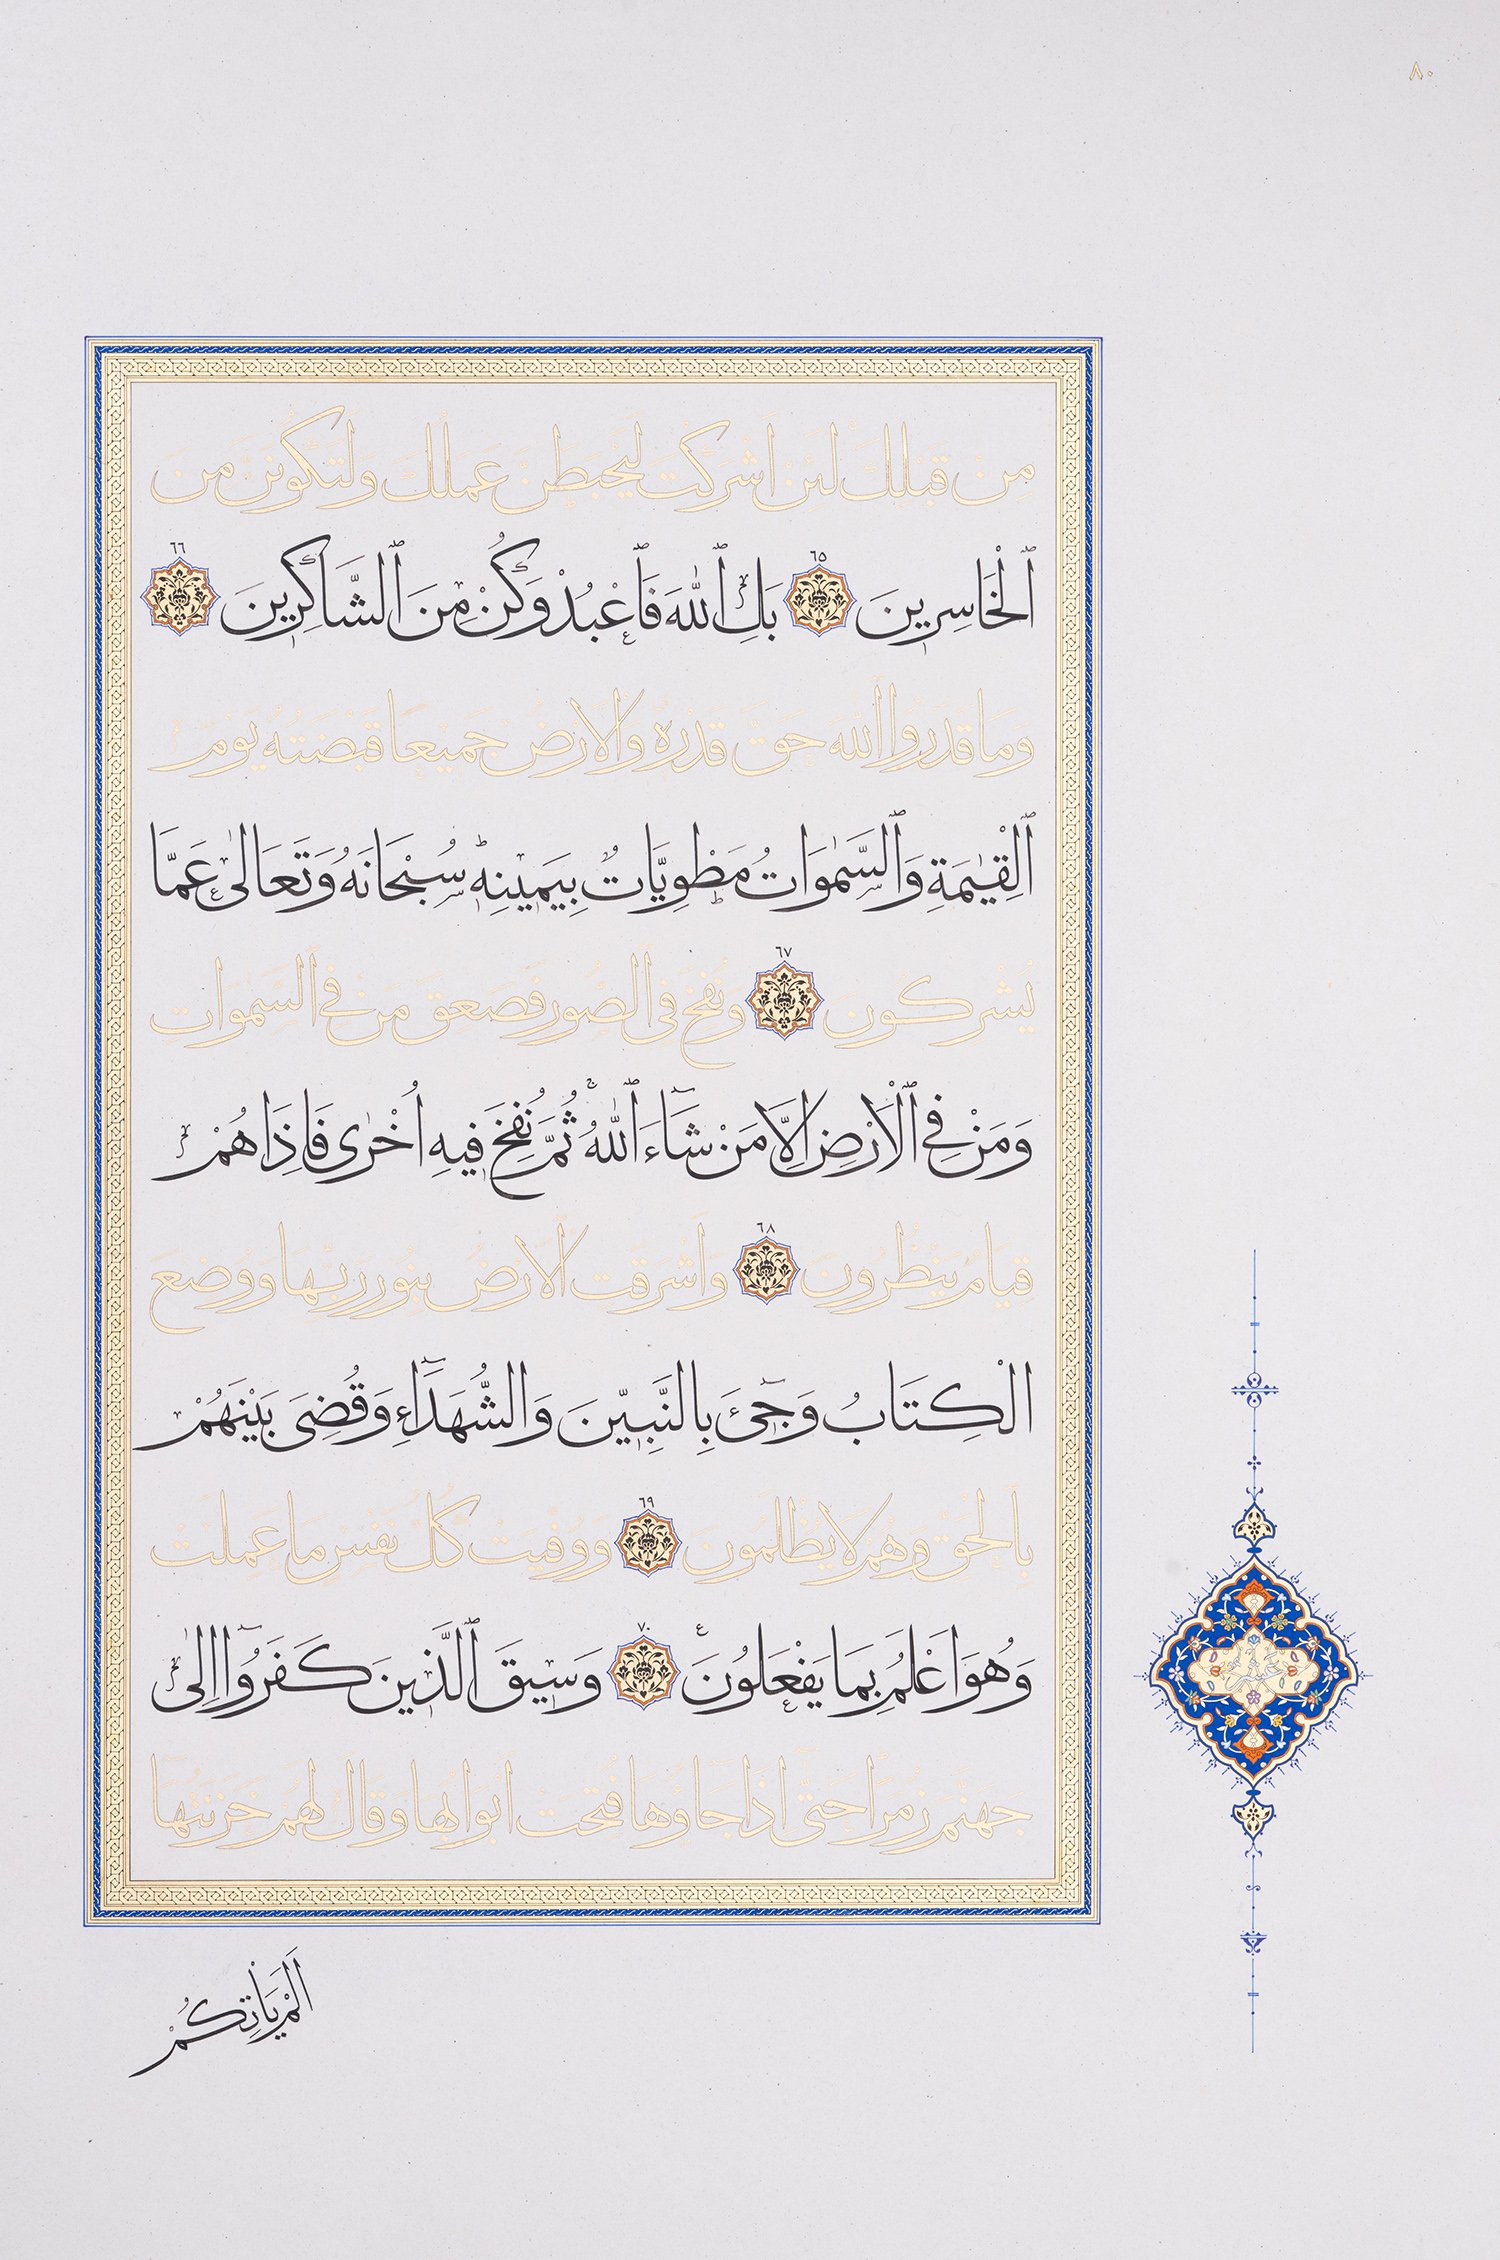 ٨٠
مِنْ قَبْلِكَ لَئِنْ اَشْرَكْتَ لَيَحْبَطَنَّ عَمَلُكَ وَلَتَكُونَنَّ مِنَ
ٱلْخَاسِرِينَ ٦٥ بَلِ ٱللّٰهَ فَٱعْبُدْ وَكُنْ مِنَ ٱلشَّاكِرِينَ ٦٦
وَمَا قَدَرُوا ٱللّٰهَ حَقَّ قَدْرِهِ وَٱلْاَرْضُ جَمِيعًا قَبْضَتُهُ يَوْمَ
ٱلْقِيٰمَةِ وَٱلسَّمٰوَاتُ مَطْوِيَّاتٌ بِيَمِينِهِ سُبْحَانَهُ وَتَعَالٰى عَمَّا
يُشْرِكُونَ ٦٧ وَنُفِخَ فِي ٱلصُّورِ فَصَعِقَ مَنْ فِي ٱلسَّمٰوَاتِ
وَمَنْ فِي ٱلْاَرْضِ اِلَّا مَنْ شَآءَ ٱللّٰهُ ثُمَّ نُفِخَ فِيهِ اُخْرٰى فَاِذَا هُمْ
قِيَامٌ يَنْظُرُونَ ٦٨ وَاَشْرَقَتِ ٱلْاَرْضُ بِنُورِ رَبِّهَا وَوُضِعَ
الْكِتَابُ وَجِيٓءَ بِالنَّبِيّينَ وَالشُّهَدَآءِ وَقُضِىَ بَيْنَهُمْ
بِٱلْحَقِّ وَهُمْ لَا يُظْلَمُونَ ٦٩ وَوُفِّيَتْ كُلُّ نَفْسٍ مَا عَمِلَتْ
وَهُوَ اَعْلَمُ بِمَا يَفْعَلُونَ ٧٠ وَسِيقَ ٱلَّذِينَ كَفَرُوٓا اِلٰى
جَهَنَّمَ زُمَرًا حَتّٰى اِذَا جَاؤُهَا فُتِحَتْ اَبْوَابُهَا وَقَالَ لَهُمْ خَزَنَتُهَا
اَلَمْ يَأْتِكُمْ